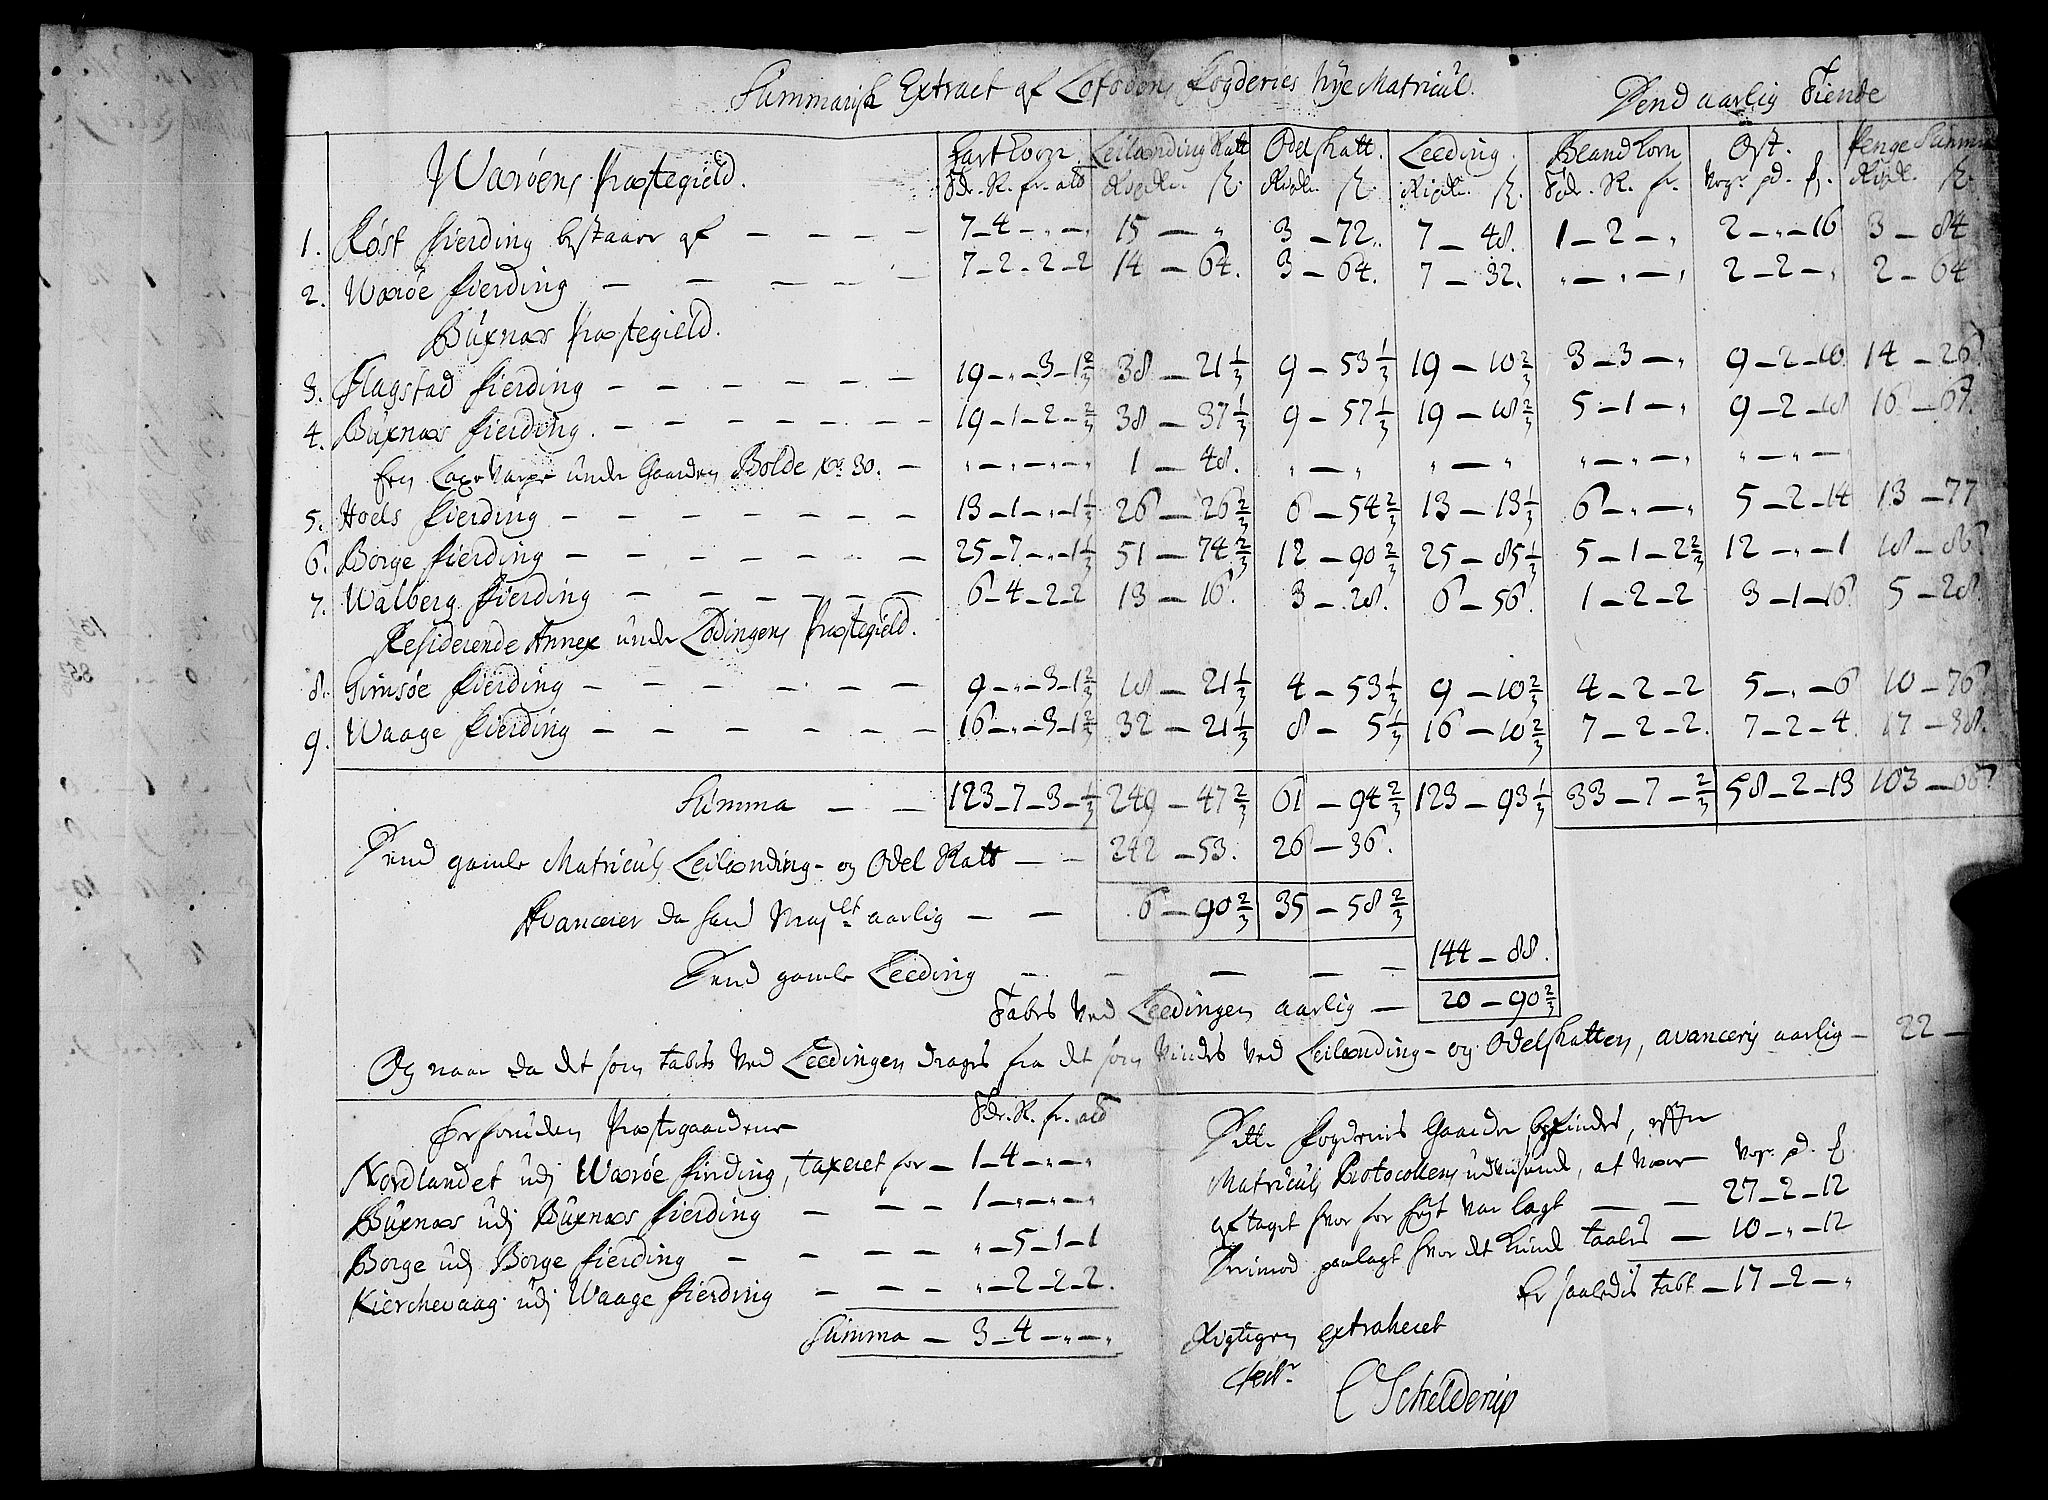 Summarisk Extract af Lofodens Fogderies Nye Matricul. Dend aarlig Tiende
Hart Korn Leilænding Skatt Odel Skatt. Leeding. Bland Korn Ost. Penge Summa
Waröens Præstegield. Tdr. S. fr. alb Rixdlr. ß. Rixdlr. ß. Rixdlr. ß. Tdr. S. fr. Vogr. pd. Rixdlr. ß.
1. Röst fierding bestaaer af — — — — 7–4–„–„ 15 — „ 3 – 72. 7 – 48. 1 – 2 – „ 2 – „ – 16 3 – 84
2. Waröe fierding — — — — — 7–2–2–2 14 – 64. 3 – 64. 7 – 32. „ – „ – „ 2 – 2 – „ 2 – 64
Buxnæs Præstegield.
3. Flagstad fierding — — — — — — 19–„–3–1 2/3 38 – 21 1/3 9 – 53 1/3 19 – 10 2/3 3 – 3 – „ 9 – 2 – 10 14 – 26
4. Buxnæs fierding. — — — — — — 19–1–2–2/3 38 – 37 1/3 9 – 57 1/3 19 – 18 2/3 5 – 1 – „ 9 – 2 – 18 16 – 67.
Een Laxe Varpe under Gaarden Bolde No 30. — „–„–„–„ 1 – 48. „ – „ „ – „ „ – „ – „ „ – „ –
5. Hoels fierding — — — — — — — 13–1–„–1 1/3 26 – 26 2/3 6 – 54 2/3 13 – 13 1/3 6 – „ – „ 5 – 2 – 14 13 – 77
6. Borge fierding — — — — — — — 25–7–„–1 1/3 51 – 74 2/3 12 – 90 2/3 25 – 85 1/3 5 – 1 – 2 2/3 12 – „ – 1 18 – 86
7. Walberg fierding — — — — — — 6–4–2–2 13 – 16. 3 – 28. 6 – 56. 1 – 2 – 2 3 – 1 – 16 5 – 28.
Residerende Annex under Lodingens Præstegield.
8. Gimsöe fierding — — — — — — 9–„–3–1 2/3 18 – 21 1/3 4 – 53 1/3 9 – 10 2/3 4 – 2 – 2 5 – „ – 6 10 – 76
9. Waage fierding — — — — — — 16–„–3–1 2/3 32 – 21 1/3 8 – 5 1/3 16 – 10 2/3 7 – 2 – 2. 7 – 2 – 4. 17 – 38.
Summa — — 123–7–3–1/3 249 – 47 2/3 61 – 94 2/3 123 – 93 1/3 33 – 7 – 2/3 58 – 2 – 13 103 –
Dend gamle Matriculs Leilænding- og Odel Skatt — — 242 – 53. 26 – 36.
Avancerer da hans Majt. aarlig — — 6 – 90 2/3 35 – 58 2/3
Dend gamle Leeding — — — — — 144 – 88.
Tabes ved Leedingen aarlig — 20 – 90 2/3
Og naar da det som tabes ved Leedingen drages fra det som vindes ved Leilænding- og Odelskatten, avanceris aarlig — 22 —
Forforuden Præstegaardene Tdr. S. fr. alb
Nordlandet udj Waröe fierding, taxeret for — 1–4–„–„
Buxnæs udj Buxnæs fierding — — — 1–„–„–„
Borge udj Borge fierding — — — — „–5–1–1
Kierchevaag udj Waage fierding — — — „–2–2–2.
Summa — 3–4–„–„
Dette Fogderies Gaarder befindes, effter
Matriculs Protocollens udvisende, at være Vogr. pd.
aftaget hvor for höyt var lagt — — 27–2–12
Derimod paalagt hvor det kunde taales — 10–„–12
Er saaledis tabt — 17–2–„
Rigtigen extraheret
C Schelderup